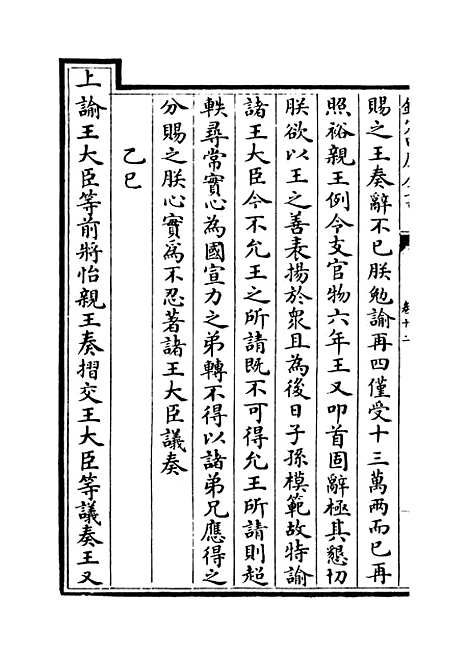 賜之王奏辭不已朕勉諭再四僅受十三萬兩而已再
照裕親王例令支官物六年王又叩首固辭極其懇切
朕欲以王之善表揚於衆且為後日子孫模範故特諭
諸王大臣今不允王之所請既不可得允王所請則超
軼尋常實心為國宣力之弟轉不得以諸弟兄應得之
分賜之朕心實為不忍著諸王大臣議奏
乙巳
上諭王大臣等前將怡親王奏摺交王大臣等議奏王又
卷十二